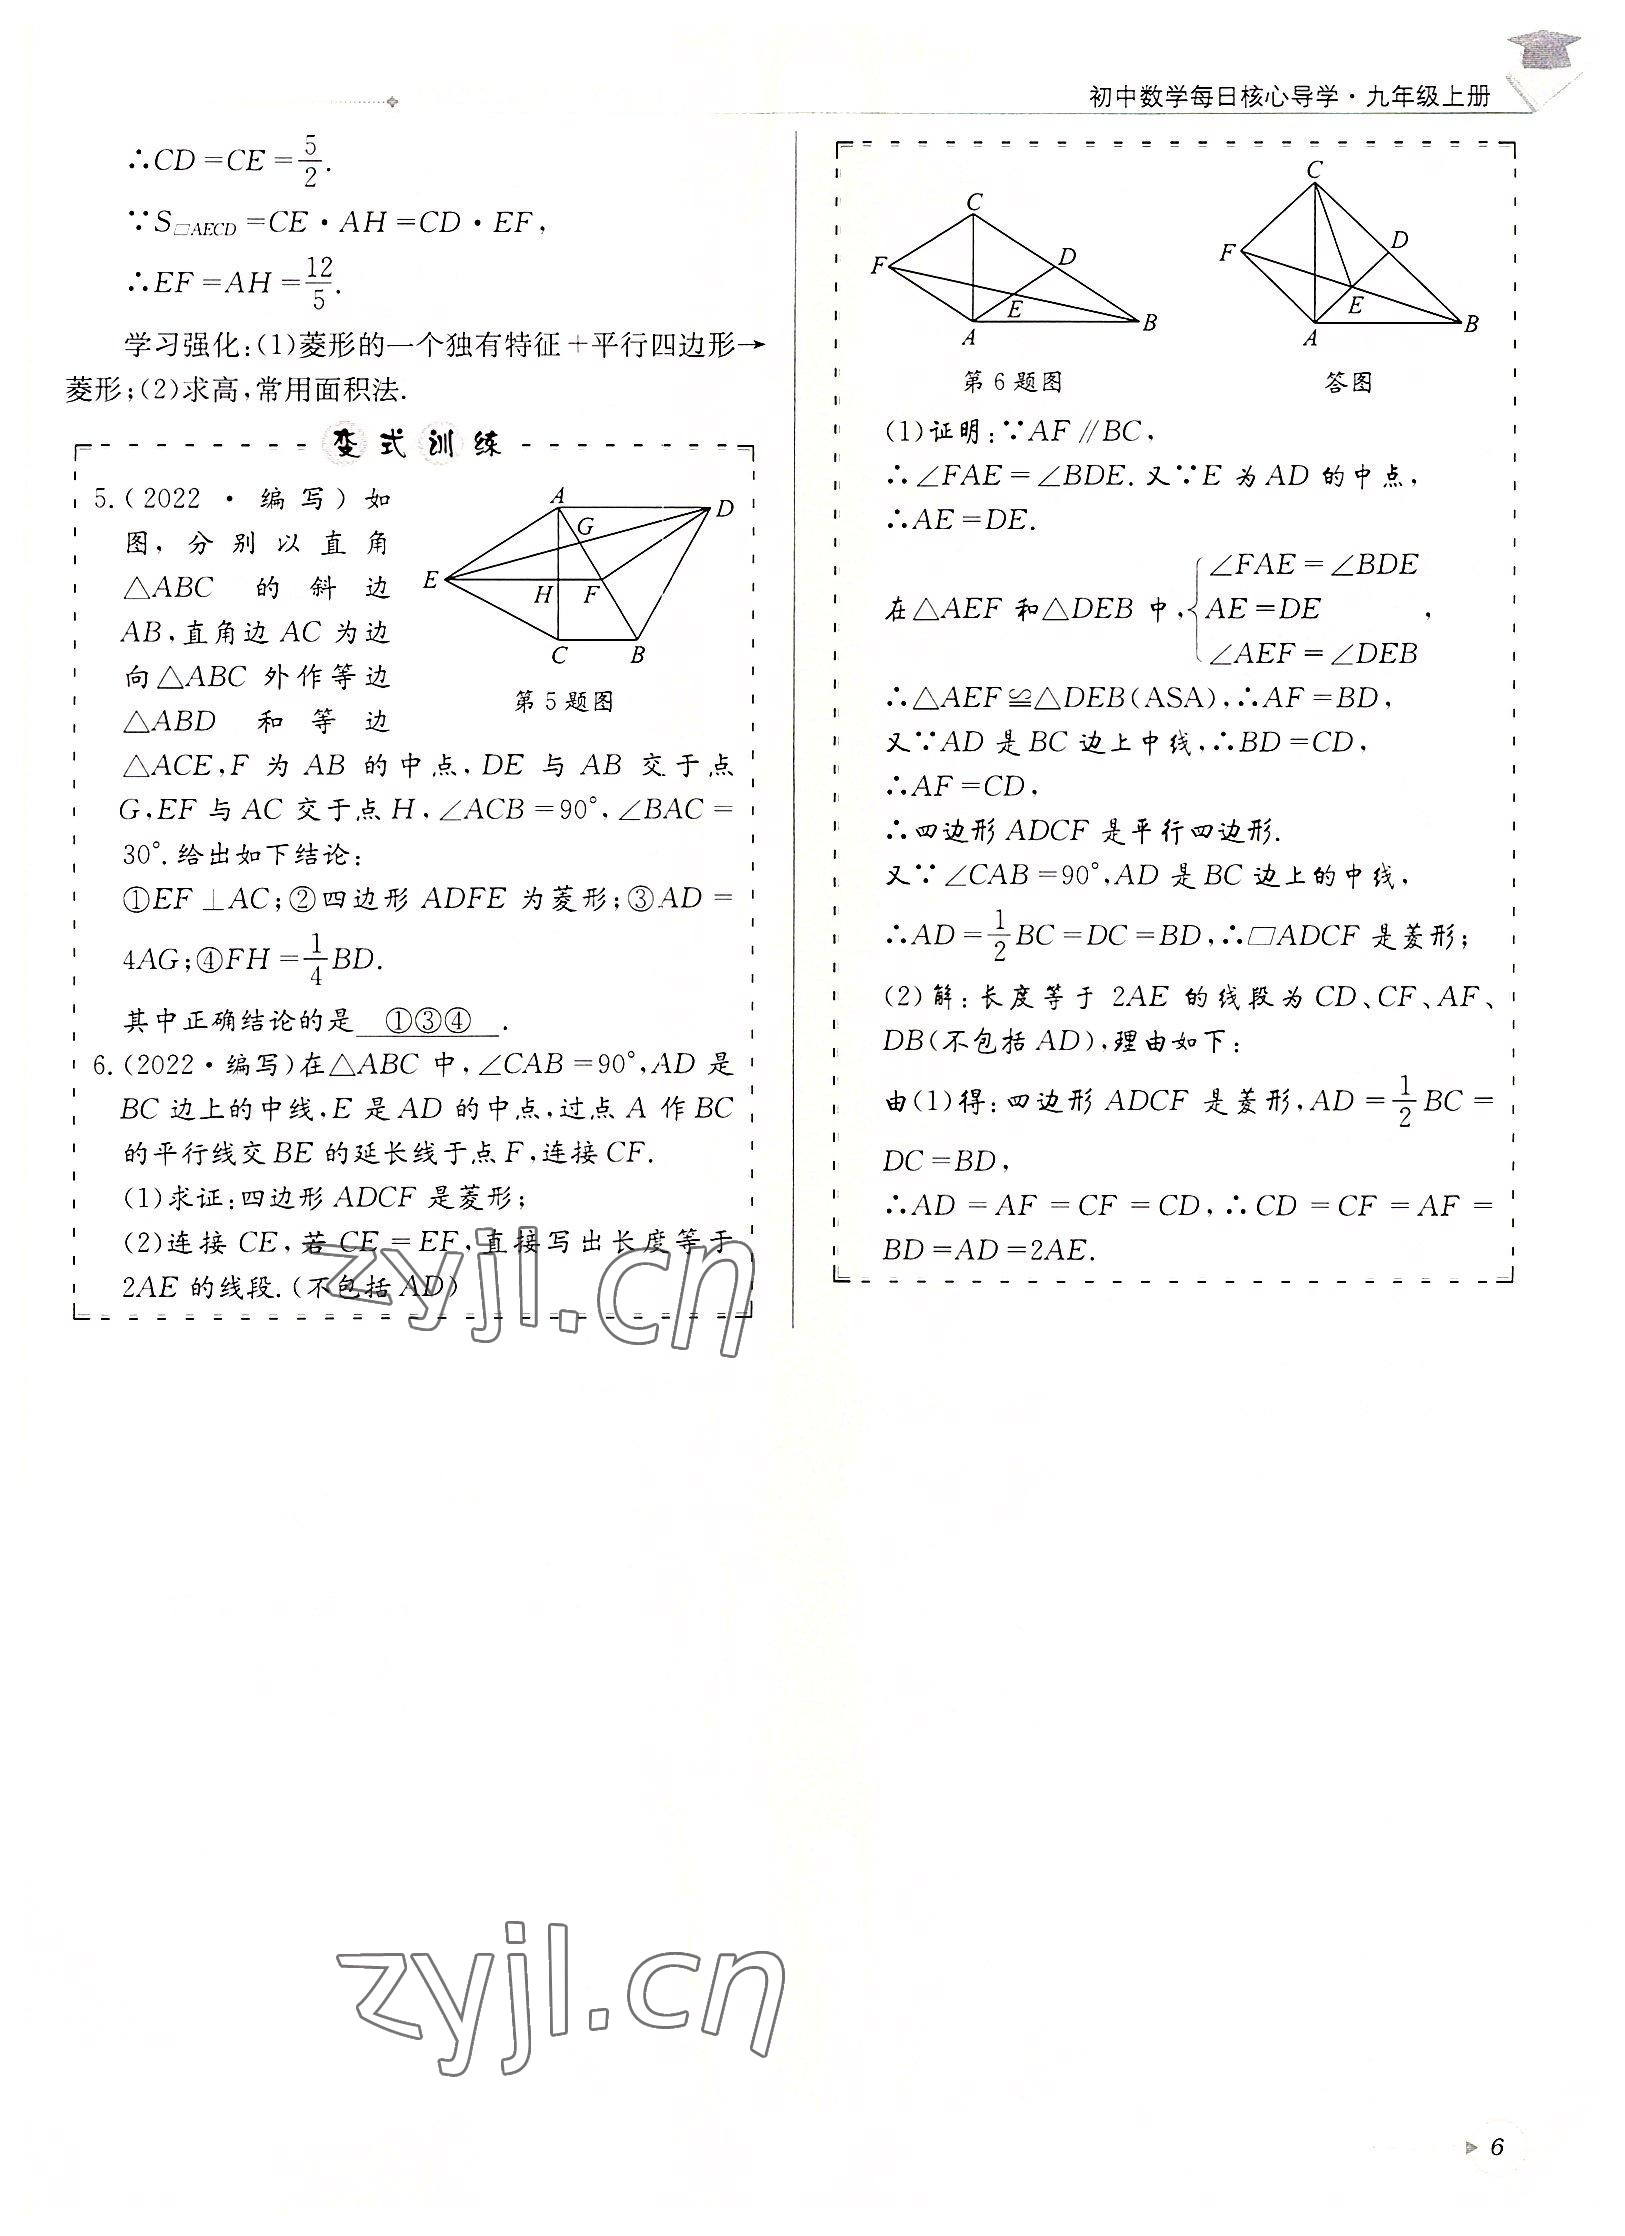 初中数学每日核心导学·九年级上册
∴CD=CE=5/2.
∵S□AECD=CE·AH=CD·EF,
∴EF=AH=12/5.
学习强化:(1)菱形的一个独有特征+平行四边形→
菱形;(2)求高,常用面积法.
变式训练
5.(2022·编写)如
图,分别以直角
△ABC的斜边
AB,直角边AC为边
向△ABC外作等边
△ABD和等边
A
D
G
E
H
F
C
B
第5题图
△ACE,F为AB的中点,DE与AB交于点
G,EF与AC交于点H,∠ACB=90°,∠BAC=
30°.给出如下结论:
①EF⊥AC;②四边形ADFE为菱形;③AD=
4AG;④FH=1/4BD.
其中正确结论的是 ①③④ .
6.(2022·编写)在△ABC中,∠CAB=90°,AD是
BC边上的中线,E是AD的中点,过点A作BC
的平行线交BE的延长线于点F,连接CF.
(1)求证:四边形ADCF是菱形;
(2)连接CE,若CE=EF,直接写出长度等于
2AE的线段.(不包括AD)
C
F
D
E
A
B
第6题图
C
F
D
E
A
B
答图
(1)证明:∵AF∥BC,
∴∠FAE=∠BDE.又∵E为AD的中点,
∴AE=DE.
在△AEF和△DEB中,{∠FAE=∠BDE
AE=DE
∠AEF=∠DEB,
∴△AEF≌△DEB(ASA),∴AF=BD,
又∵AD是BC边上中线,∴BD=CD,
∴AF=CD,
∴四边形ADCF是平行四边形.
又∵∠CAB=90°,AD是BC边上的中线,
∴AD=1/2BC=DC=BD,∴□ADCF是菱形;
(2)解:长度等于2AE的线段为CD、CF、AF、
DB(不包括AD),理由如下:
由(1)得:四边形ADCF是菱形,AD=1/2BC=
DC=BD,
∴AD=AF=CF=CD,∴CD=CF=AF=
BD=AD=2AE.
zyjl.cn
zyjl.cn
6